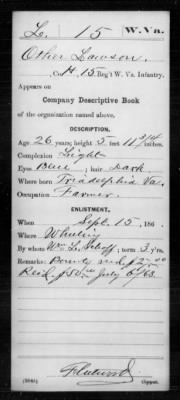 L. 15 W. Va.
Other Lawson,
Co. H, 15 Reg't W. Va. Infantry.
Appears on
Company Descriptive Book
of the organization named above.
DESCRIPTION.
Age 26 years; height 5 feet 11 3/4 inches.
Complexion Light
Eyes Blue; hair Dark
Where born Triadelphia Va.
Occupation Farmer.
ENLISTMENT.
When Sept. 15, 186 .
Where Wheeling
By whom Wm. L.; term 3 y'rs.
Remarks: Bounty
July 63.
Copyist.